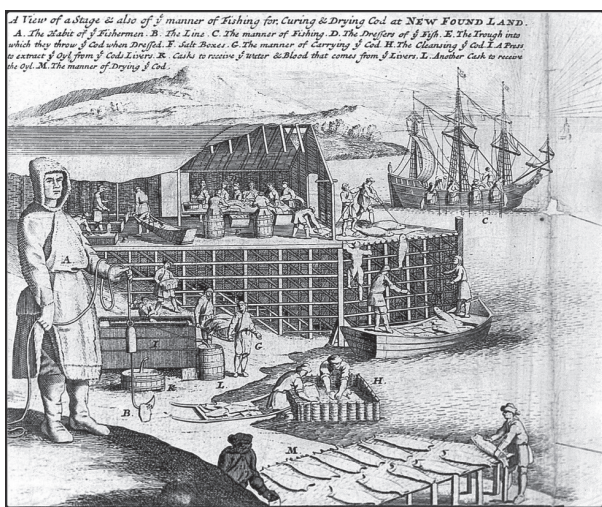 A View of a Stage & also of ẏ manner of Fishing for, Curing & Drying Cod at NEW FOUND LAND.
A. The Habit of ẏ Fishermen. B. The Line. C. The manner of Fishing. D. The Dressers of ẏ Fish. E. The Trough into
which they throw ẏ Cod when Dressed. F. Salt Boxes. G. The manner of Carrying ẏ Cod. H. The Cleansing ẏ Cod. I. A Press
to extract ẏ Oyl from ẏ Cods Livers. K. Casks to receive ẏ Water & Blood that comes from ẏ Livers. L. Another Cask to receive
the Oyl. M. The manner of Drying ẏ Cod.
C.
A
I
G
K
L
B
H.
M